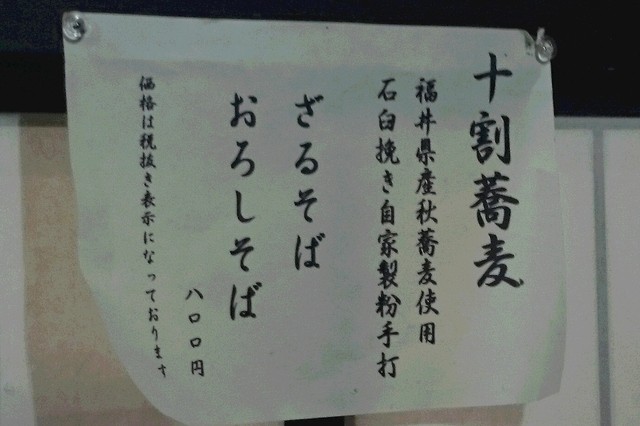 十割蕎麦
福井県産秋蕎麦使用
石臼挽き自家製粉手打
ざるそば
おろしそば
八〇〇円
価格は税抜き表示になっております